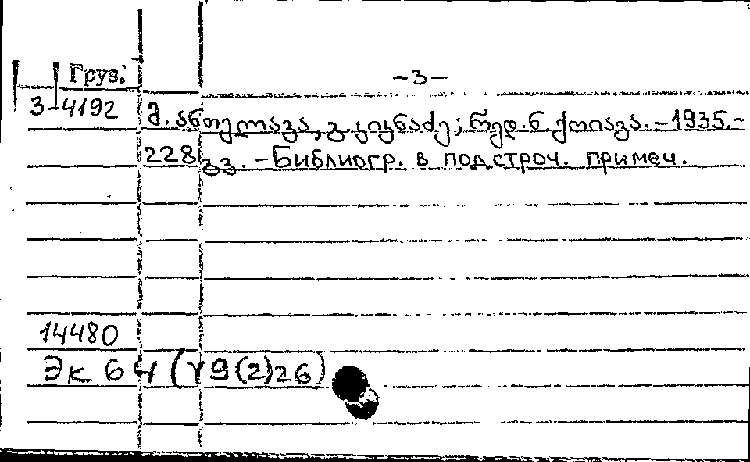 -3-
Груз.
3-4192 მ. ანთელავა, გ. კიკნაძე; რედ. ნ. ქოიავა. - 1935. -
228 გვ. - Библиогр. в подстроч. примеч.
14480
Эк 64 (Y9(2)26)